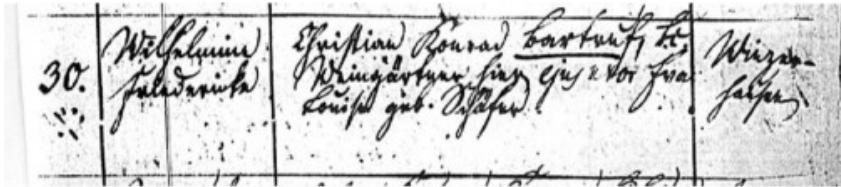 30.
Wilhelmine
Friedericke
Christian Konrad Bartruff,
Weingärtner hier ejus uxor
Louise geb. Schäfer
Winzer-
hausen